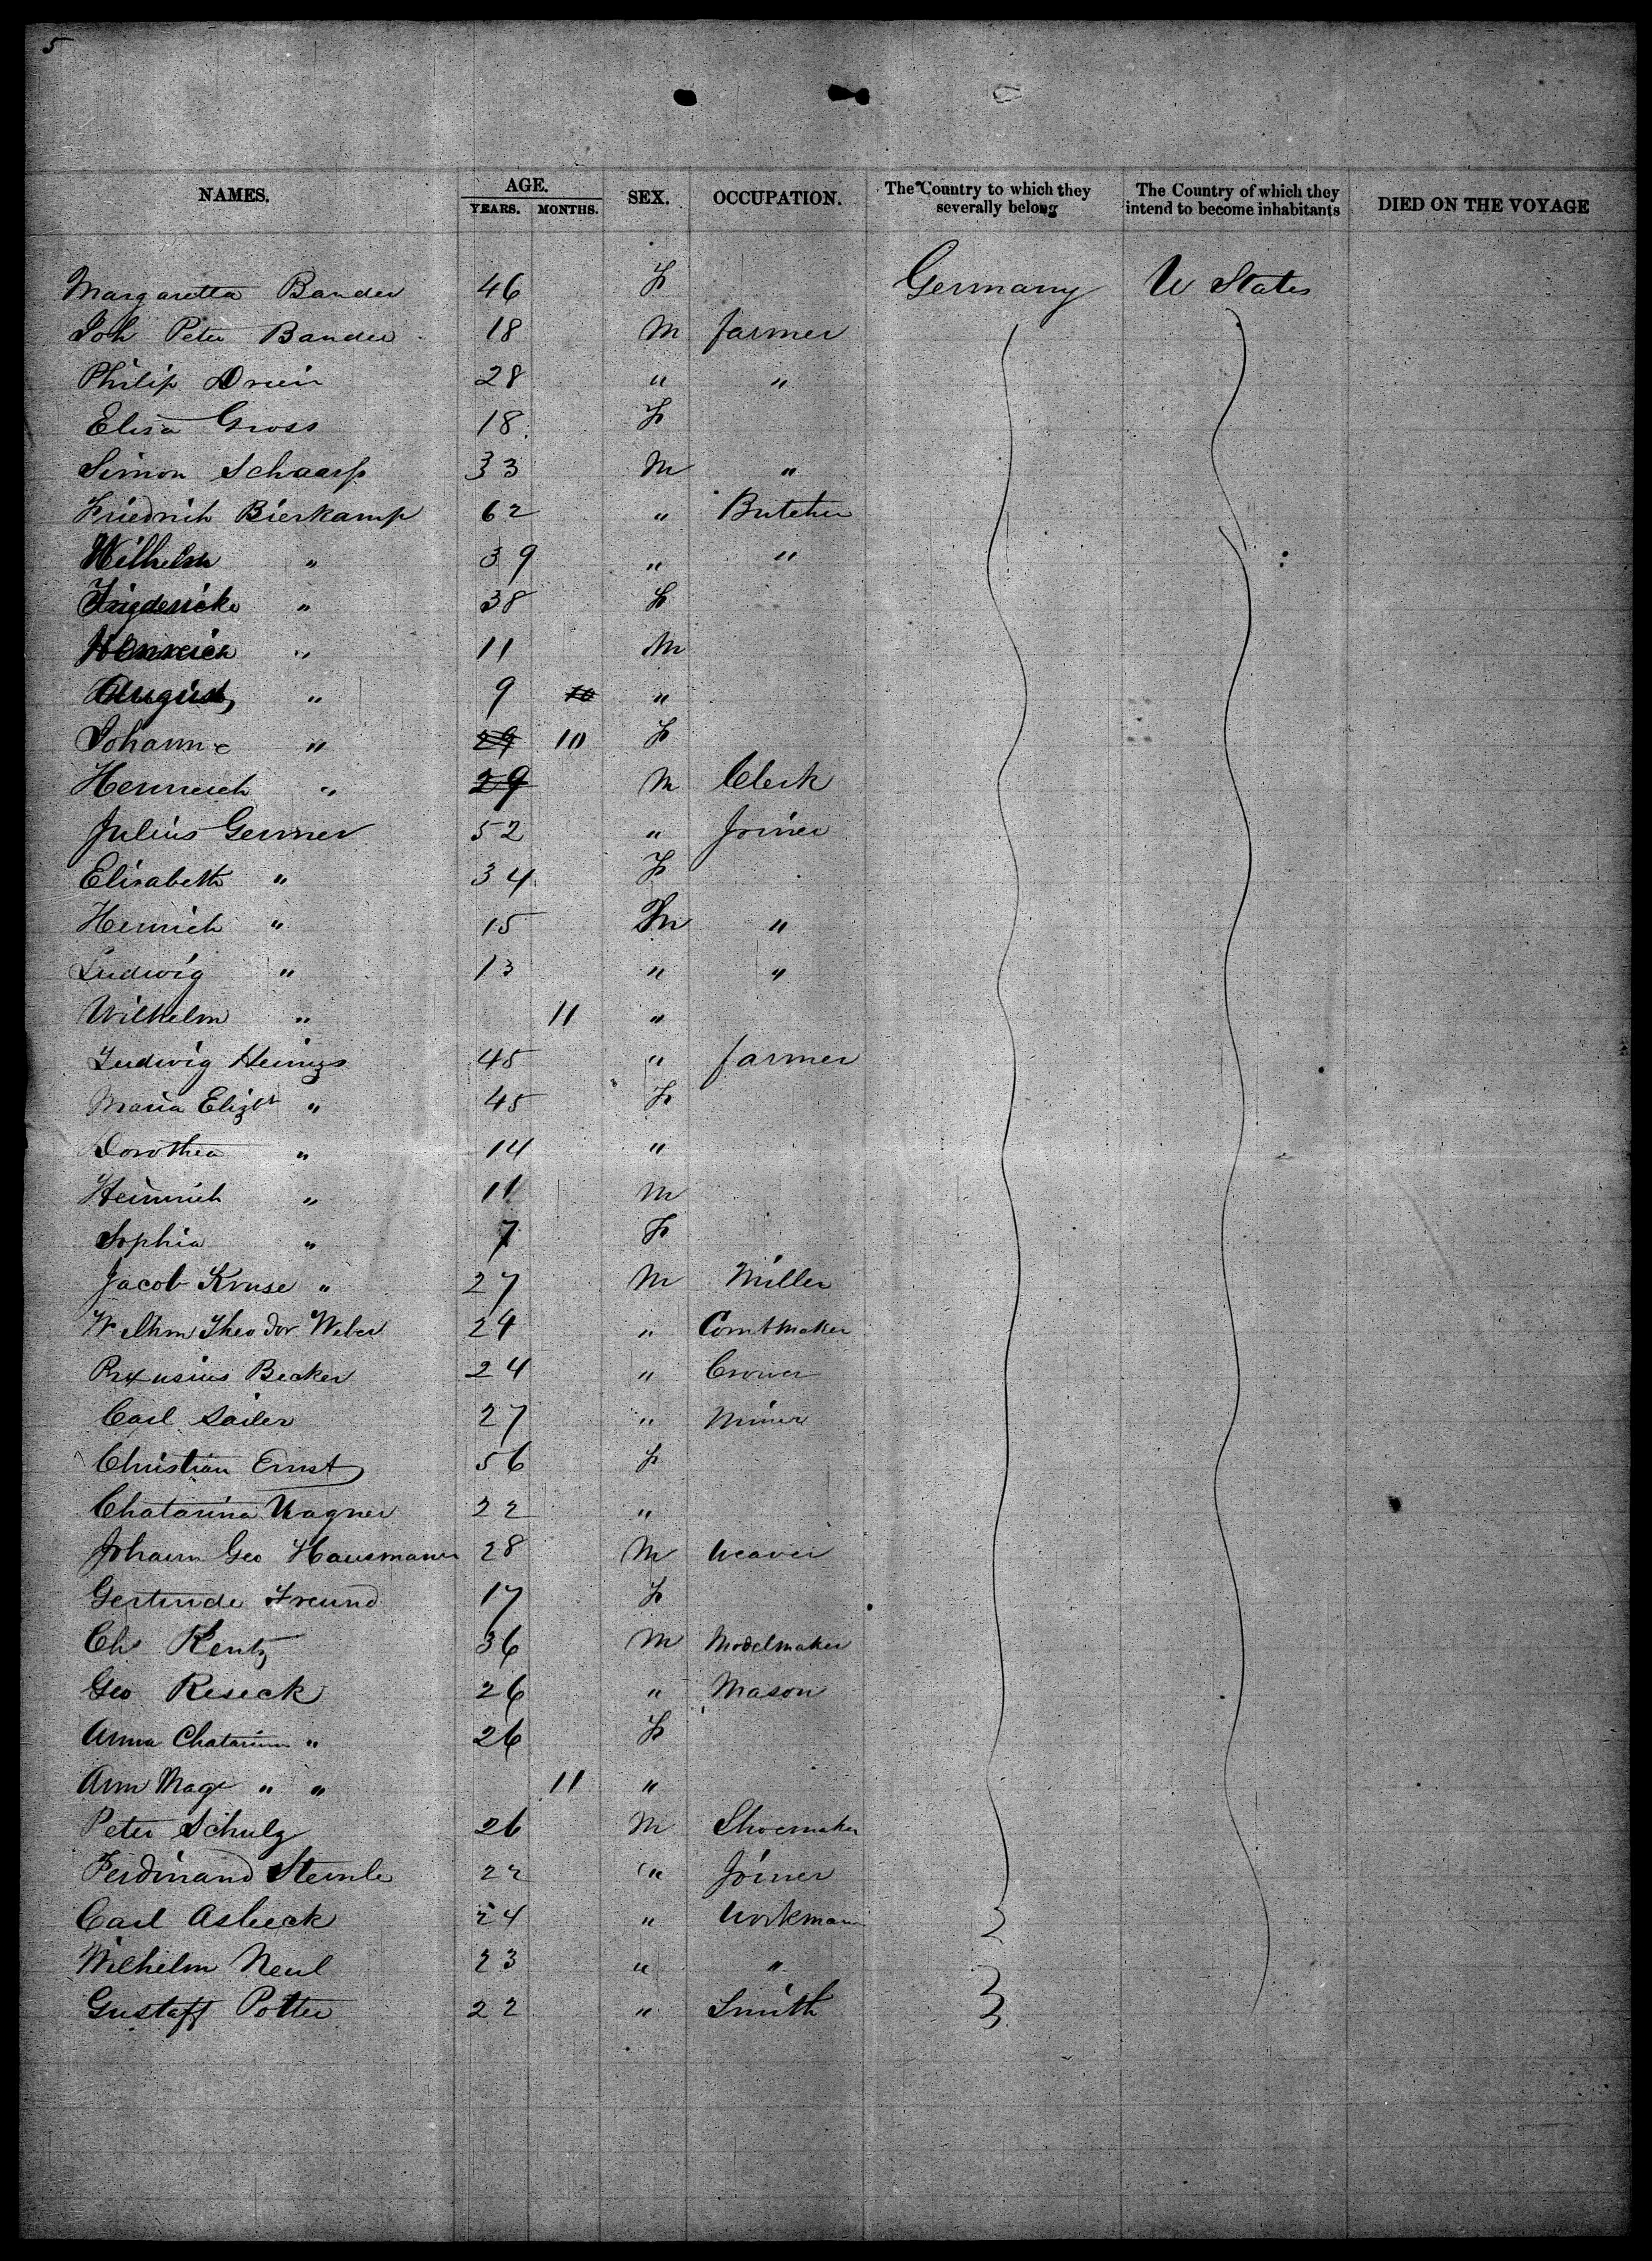 5
NAMES. AGE. SEX. OCCUPATION. The Country to which they severally belong The Country of which they intend to become inhabitants DIED ON THE VOYAGE
YEARS. MONTHS.
Margaretta Bander 46 F Germany U States
Joh Peter Bander 18 M farmer
Philip 28 " "
Elisa Gross 18 F
Simon Schaarp 33 M "
Friedrich Bierkamp 62 " Butcher
Wilhelm " 39 " "
Friedericke " 38 F
Heinrich " 11 M
August " 9 10 "
Johanne " 29 10 F
Hennrich " 29 M Clerk
Julius Germer 52 " Joiner
Elisabeth " 34 F
Henrich " 15 M "
Ludwig " 13 " "
Wilhelm " 11 "
Ludwig 45 " farmer
Maria Elizbt " 45 F
Dorothea " 14 "
Heinrich " 11 M
Sophia " 7 F
Jacob Kruse " 27 M Miller
Wilhm Theodor Weber 24 " Combmaker
Becker 24 "
Carl Sailer 27 " Miner
Christian Ernst 56 F
Chatarina Wagner 22 "
Johann Geo Hausmann 28 M Weaver
Gertrude Freund 17 F
Ch Rentz 36 M Modelmaker
Geo Reseck 26 " Mason
Anna Chatarina " 26 F
Ann Mag " " 11 "
Peter Schulz 26 M Shoemaker
Ferdinand Steinle 22 " Joiner
Carl Asbeck 24 " Workman
Wilhelm Neul 23 " "
Gustaff Potter 22 " Smith